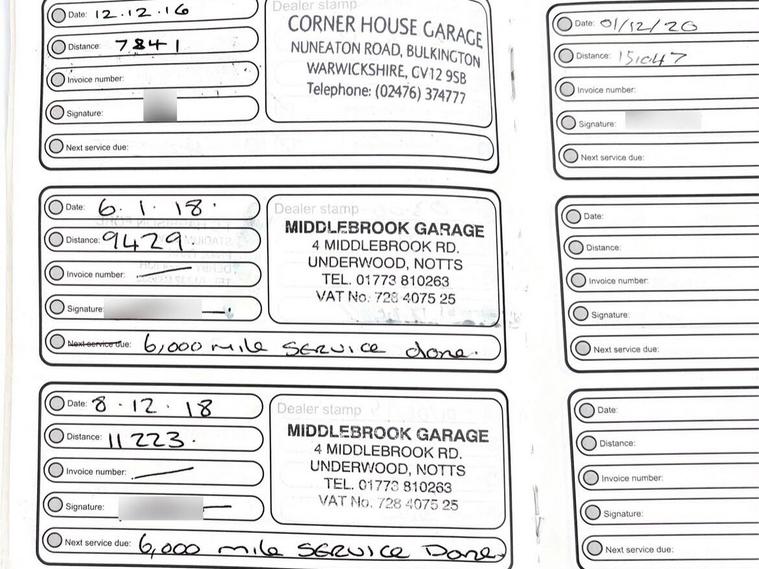 Date: 12.12.16
Distance: 7841
Invoice number:
Signature:
Next service due:
Dealer stamp
CORNER HOUSE GARAGE
NUNEATON ROAD, BULKINGTON
WARWICKSHIRE, CV12 9SB
Telephone: (02476) 374777
Date: 6.1.18.
Distance: 9429
Invoice number:
Signature:
Next service due: 6,000 mile SERVICE done.
Dealer stamp
MIDDLEBROOK GARAGE
4 MIDDLEBROOK RD.
UNDERWOOD, NOTTS
TEL. 01773 810263
VAT No. 728 4075 25
Date: 8.12.18
Distance: 11223.
Invoice number:
Signature:
Next service due: 6,000 mile SERVICE Done.
Dealer stamp
MIDDLEBROOK GARAGE
4 MIDDLEBROOK RD.
UNDERWOOD, NOTTS
TEL. 01773 810263
VAT No. 728 4075 25
Date: 01/12/20
Distance: 15,047
Invoice number:
Signature:
Next service due:
Date:
Distance:
Invoice number:
Signature:
Next service due:
Date:
Distance:
Invoice number:
Signature:
Next service due: